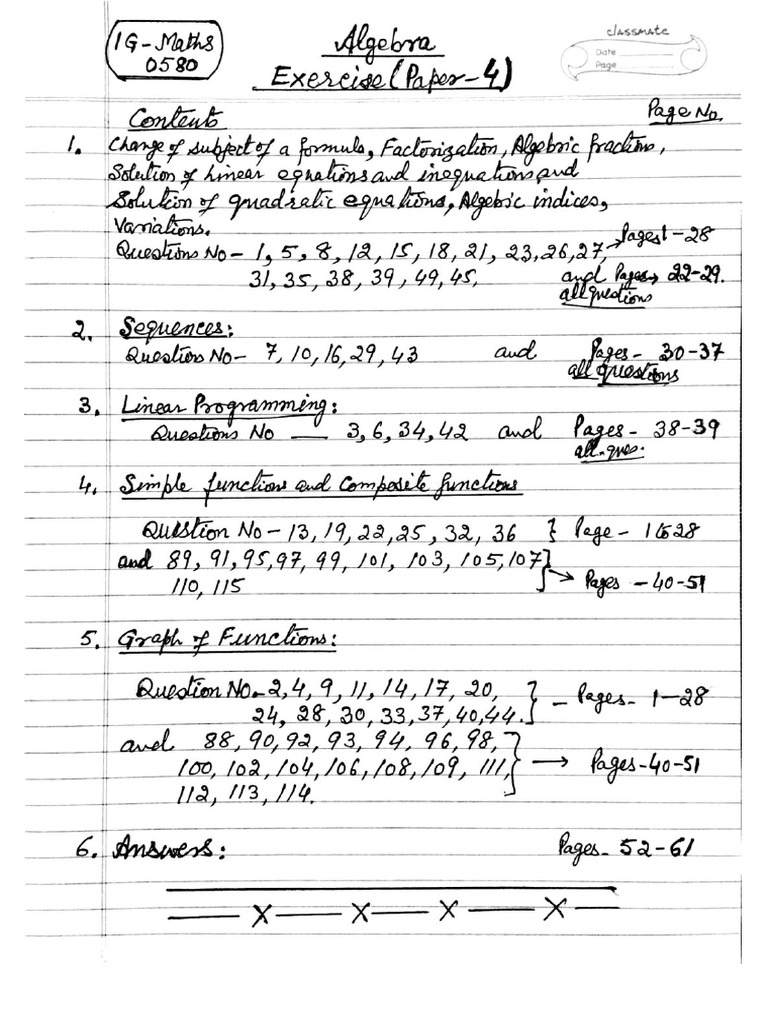 IG-Maths
0580
Algebra
Exercise (Paper-4)
classmate
Date
Page
Contents
Page No.
1. Change of subject of a formula, Factorization, Algebric fractions,
Solution of Linear equations and inequations and
Solution of quadratic equations, Algebric indices,
Variations.
Questions No - 1, 5, 8, 12, 15, 18, 21, 23, 26, 27, → Pages 1-28
31, 35, 38, 39, 49, 45. and Pages → 22-29.
all questions
2. Sequences:
Questions No - 7, 10, 16, 29, 43 and Pages - 30-37
all questions
3. Linear Programming:
Questions No — 3, 6, 34, 42 and Pages - 38-39
all ques.
4. Simple functions and composite functions
Question No - 13, 19, 22, 25, 32, 36 } Page - 1 to 28
and 89, 91, 95, 97, 99, 101, 103, 105, 107 }
110, 115 → Pages - 40-51
5. Graph of Functions:
Question No. - 2, 4, 9, 11, 14, 17, 20, } - Pages - 1-28
24, 28, 30, 33, 37, 40, 44.
and 88, 90, 92, 93, 94, 96, 98, }
100, 102, 104, 106, 108, 109, 111, → Pages - 40-51
112, 113, 114.
6. Answers: Pages - 52-61
— X — X — X — X —